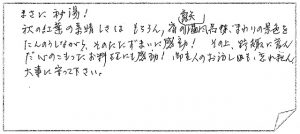 まさに秘湯！
秋の紅葉の素晴しさはもちろん、宿の露天風呂様、まわりの景色を
たんのうしながら、そのたたずまいに感動！ その上、野趣に富ん
だ心のこもったお料理にも感動！ 御主人のお話しも
大事に守って下さい。